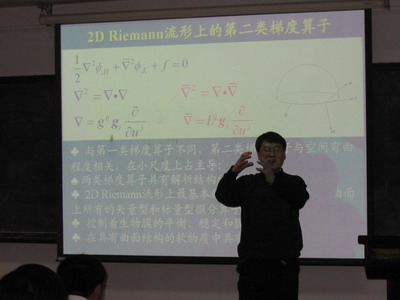 2D Riemann流形上的第二类梯度算子
½∇²φ,H + ∇̄²φ,K + f = 0
∇² = ∇·∇ ∇̄² = ∇·∇̄
∇ = gⁱʲgᵢ ∂/∂uʲ ∇̄ = L̄ⁱʲgᵢ ∂/∂uʲ
♣ 与第一类梯度算子不同，第二类梯 与空间弯曲
程度相关，在小尺度上占主导
♣ 两类梯度算子具有解析结构
♣ 2D Riemann流形上最基本 曲面
上所有的矢量型和标量型微分算子
♣ 控制着生物膜的平衡、稳定和
♣ 在具有曲面结构的软物质中具